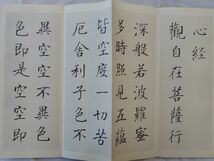 心經
觀自在菩薩行
深般若波羅蜜
多時照見五蘊
皆空度一切苦
厄舍利子色不
異空空不異色
色即是空空即